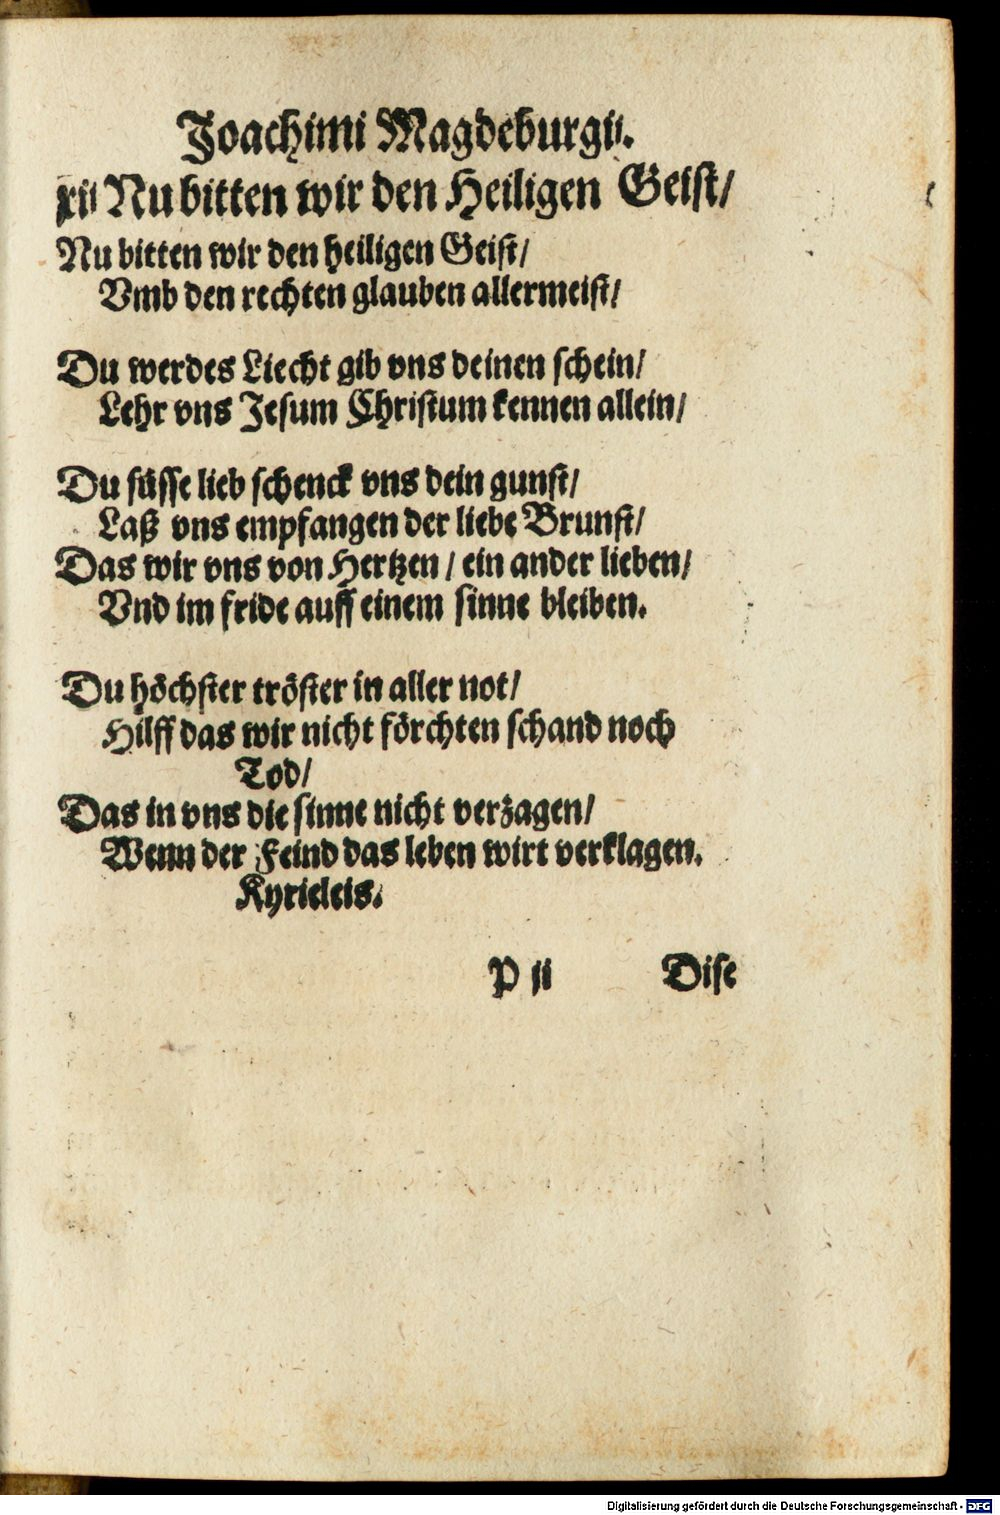 Joachimi Magdeburgii.
xii Nu bitten wir den Heiligen Geist/
Nu bitten wir den heiligen Geist/
Vmb den rechten glauben allermeist/
Du werdes Liecht gib vns deinen schein/
Lehr vns Jesum Christum kennen allein/
Du süsse lieb schenck vns dein gunst/
Laß vns empfangen der liebe Brunst/
Das wir vns von Hertzen / ein ander lieben/
Vnd im fride auff einem sinne bleiben.
Du höchster tröster in aller not/
Hilff das wir nicht förchten schand noch
Tod/
Das in vns die sinne nicht verzagen/
Wenn der Feind das leben wirt verklagen.
Kyrieleis.
P ii Dise
Digitalisierung gefördert durch die Deutsche Forschungsgemeinschaft - DFG